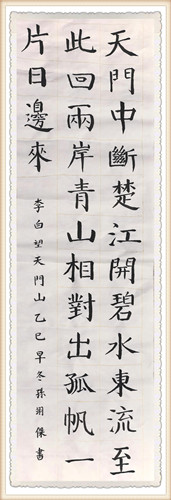 天門中斷楚江開碧水東流至
此回兩岸青山相對出孤帆一
片日邊來
李白望天門山乙巳早冬孫明傑書